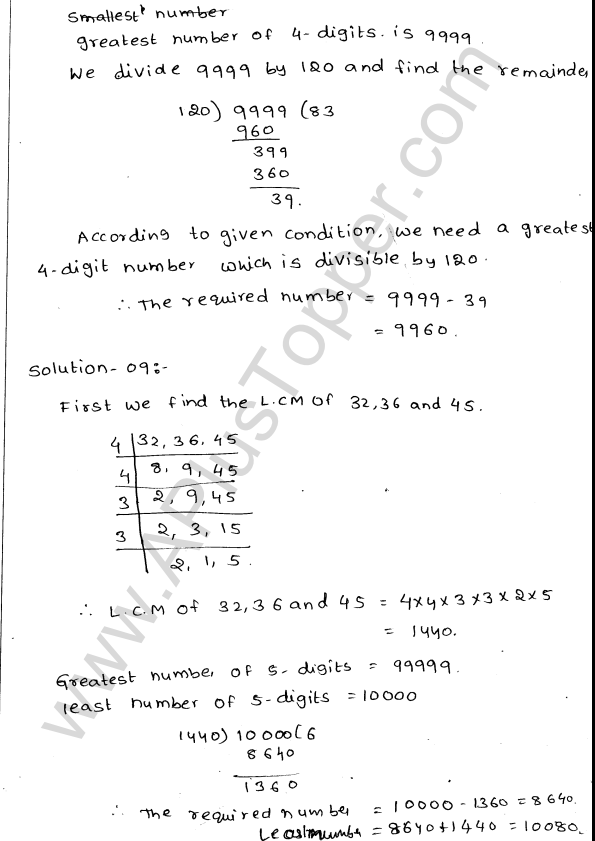 Smallest number
greatest number of 4-digits. is 9999.
We divide 9999 by 120 and find the remainder
120) 9999 (83
960
399
360
39.
According to given condition, we need a greatest
4-digit number which is divisible by 120.
∴ The required number = 9999 - 39
= 9960.
Solution-09:-
First we find the L.CM of 32,36 and 45.
4 | 32, 36, 45
4 | 8, 9, 45
3 | 2, 9, 45
3 | 2, 3, 15
2, 1, 5.
∴ L.C.M of 32,36 and 45 = 4x4x3x3x2x5
= 1440.
Greatest number of 5-digits = 99999.
least number of 5-digits = 10000
1440) 10000 (6
8640
1360
∴ The required number = 10000 - 1360 = 8640.
Least number = 8640+1440 = 10080.
www.APlusTopper.com